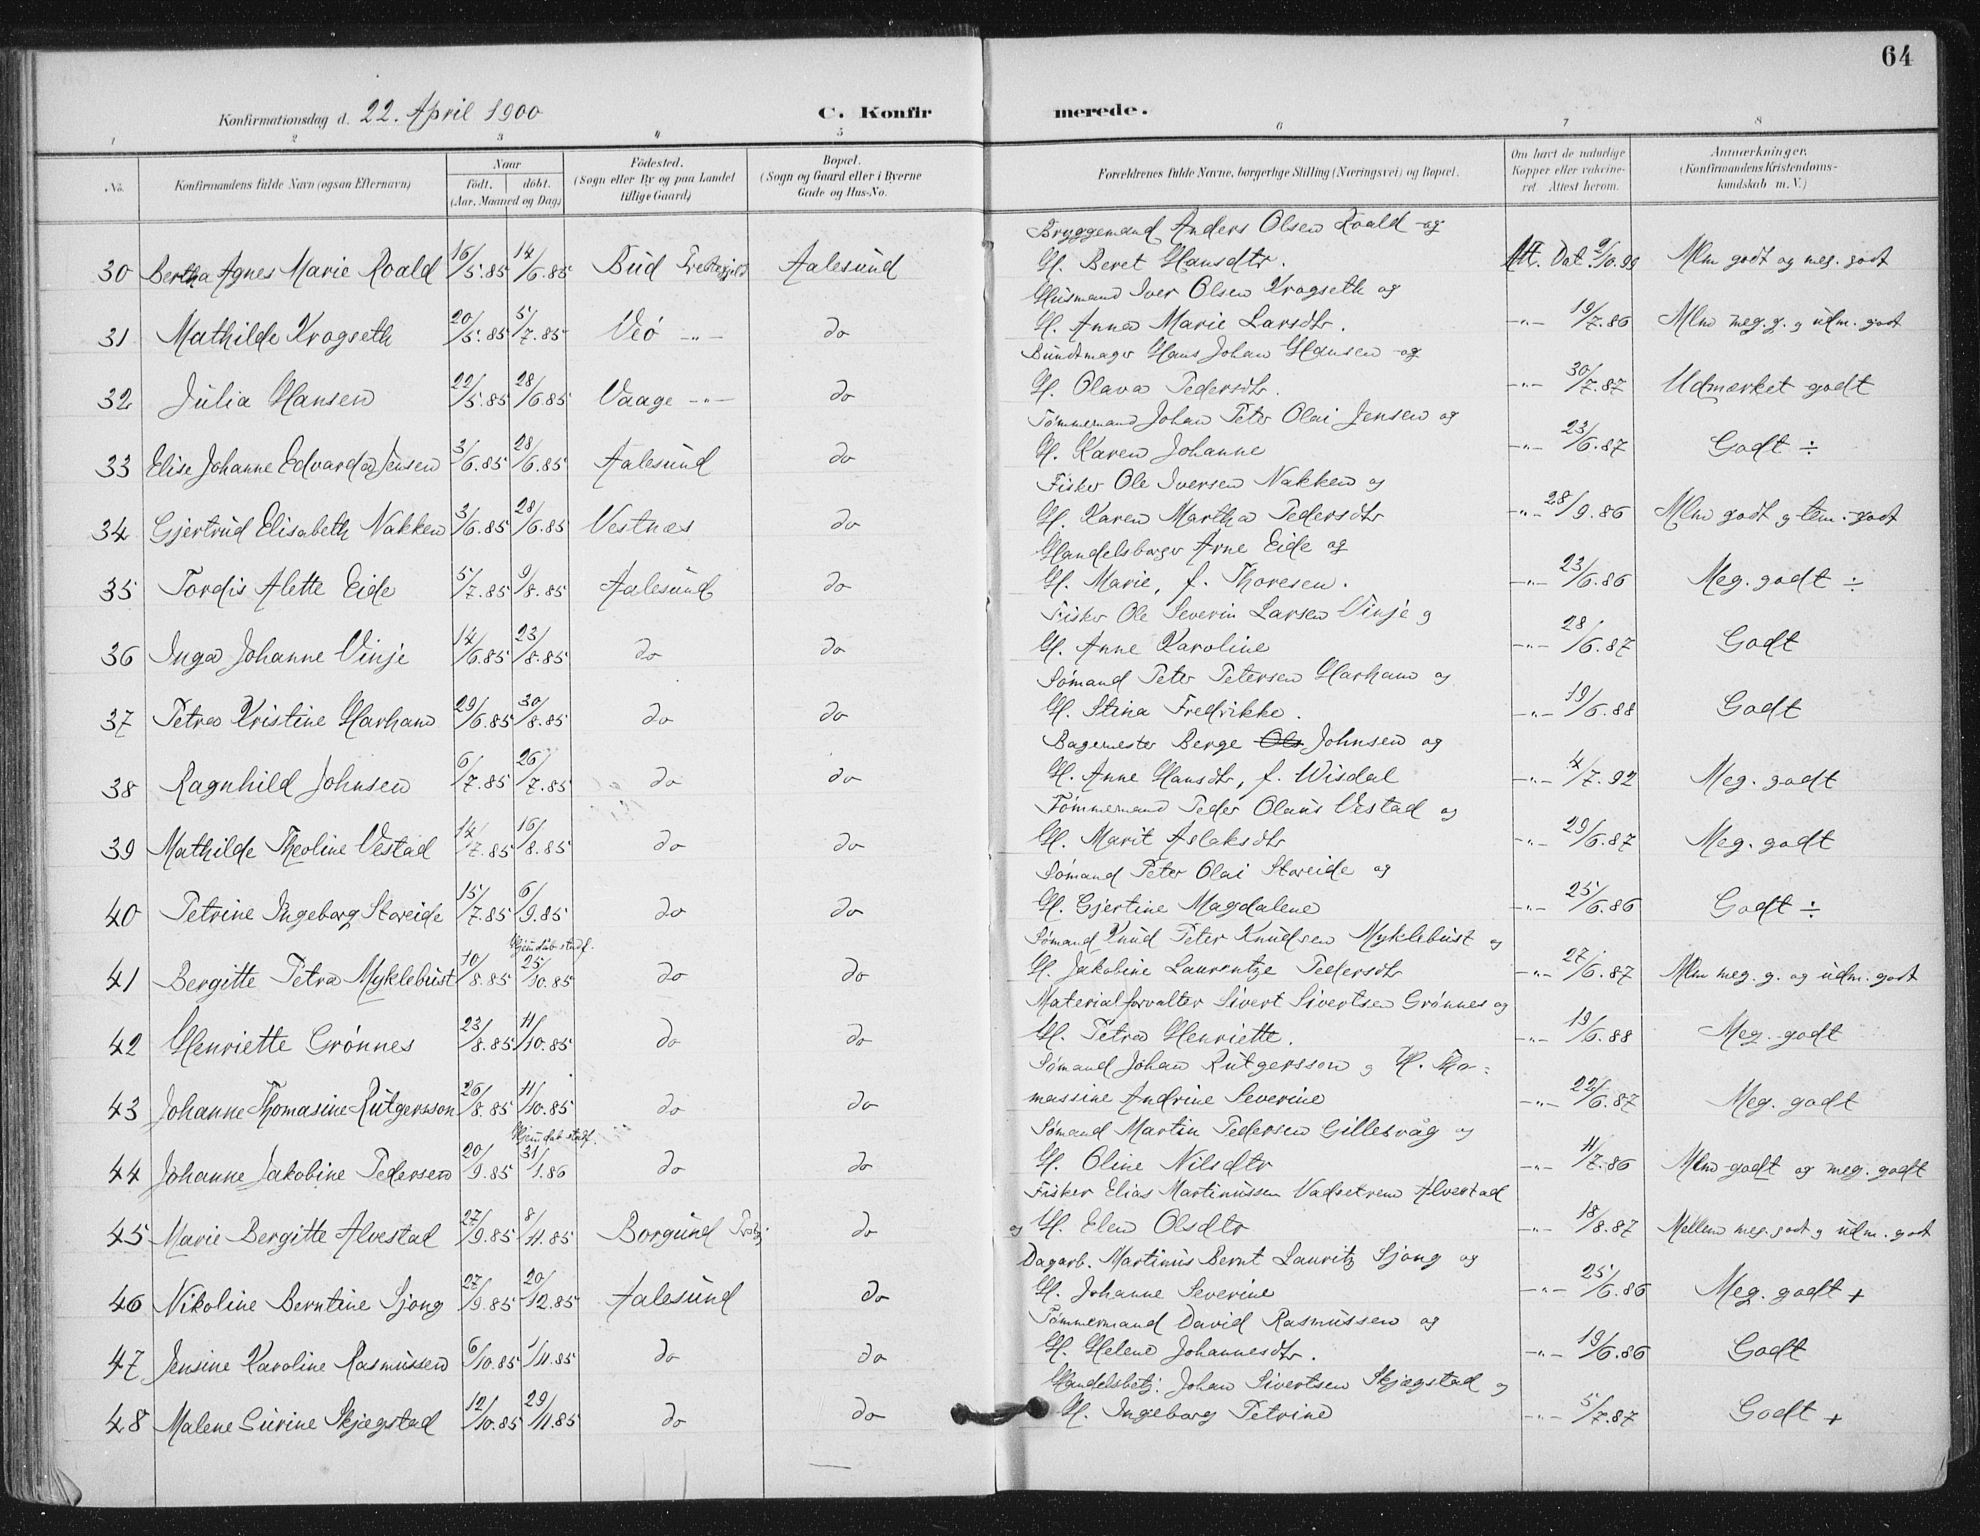 64
Konfirmationsdag d. 22. April 1900 C. Konfirmerede.
1 2 3 4 5 6 7 8
No. Konfirmandens fulde Navn (ogsaa Efternavn) Naar født. døbt. (Aar, Maaned og Dag) Fødested. (Sogn eller By og paa Landet tillige Gaard) Bopæl. (Sogn og Gaard eller i Byerne Gade og Hus-No. Forældrenes fulde Navne, borgerlige Stilling (Næringsvei) og Bopæl. Om havt de naturlige Kopper eller vakcineret. Attest herom. Anmærkninger. (Konfirmandens Kristendomskundskab m. V.)
Bryggemand Anders Olsen Roald og
30 Bertha Agnes Marie Roald 16/5.85 14/6.85 Bud Aalesund H. Beret Hansdtr. Att. Dat. 9/10.99 Mlm godt og meg. godt
Husmand Iver Olsen Krogseth og
31 Mathilde Krogseth 20/5.85 5/7.85 Veö -"- do H. Anna Marie Larsdtr. -"- 19/7.86 Mlm meg. g. og udm. godt
Bundtmager Hans Johan Hansen og
32 Julia Hansen 22/5.85 28/6.85 Vaage -"- do H. Olava Pedersdtr. -"- 30/7.87 Udmærket godt
Tömmermand Johan Peter Olai Jensen og
33 Elise Johanne Edvarda Jensen 3/6.85 28/6.85 Aalesund do H. Karen Johanne -"- 23/6.87 Godt ÷
Fisker Ole Iversen Nakken og
34 Gjertrud Elisabeth Nakken 3/6.85 28/6.85 Vestnes do H. Karen Martha Pedersdtr -"- 28/9.86 Mlm godt og tem. godt
Handelsborger Arne Eide og
35 Tordis Alette Eide 5/7.85 9/8.85 Aalesund do H. Marie, f. Thoresen. -"- 23/6.86 Meg. godt ÷
Fisker Ole Severin Larsen Vinje og
36 Inga Johanne Vinje 14/6.85 23/8.85 do do H. Anne Karoline -"- 28/6.87 Godt
Sömand Peter Petersen Harham og
37 Petra Kristine Harham 29/6.85 30/8.85 do do H. Stina Fredrikke. -"- 19/6.88 Godt
Bagermester Berge Ols Johnsen og
38 Ragnhild Johnsen 6/7.85 26/7.85 do do H. Anne Hansdtr, f. Wisdal -"- 4/7.92 Meg. godt
Tömmermand Peder Olaus Vestad og
39 Mathilde Theoline Vestad 14/7.85 16/8.85 do do H. Marit Aslaksdtr -"- 29/6.87 Meg. godt
Sömand Peter Olai Storeide og
40 Petrine Ingeborg Storeide 15/7.85 6/9.85 do do H. Gjertine Magdalene -"- 25/6.86 Godt ÷
Hjemdåb stadf. Sömand Knud Peter Knudsen Myklebust og
41 Bergitte Petra Myklebust 10/8.85 25/10.85 do do H. Jakobine Laurentze Pedersdtr -"- 27/6.87 Mlm meg. g. og udm. godt
Materialforvalter Sivert Sivertsen Grönnes og
42 Henriette Grönnes 23/8.85 11/10.85 do do H. Petra Henriette. -"- 19/6.88 Meg. godt
Sömand Johan Rutgersson og H. Tho-
43 Johanne Thomasine Rutgersson 26/8.85 11/10.85 do do massine Andrine Severine -"- 22/6.87 Meg. godt
Hjemdåb stadf. Sömand Martin Pedersen Gillesvåg og
44 Johanne Jakobine Pedersen 20/9.85 31/1.86 do do H. Oline Nilsdtr -"- 11/7.86 Mlm godt og meg. godt
Fisker Elias Martinussen Vadsetrem Alvestad
45 Marie Bergitte Alvestad 27/9.85 8/11.85 Borgund do og H. Elen Olsdtr -"- 18/8.87 Mellem meg. godt og udm. godt
Dagarb. Martinus Bernt Lauritz Sjong og
46 Nikoline Berntine Sjong 27/9.85 20/12.85 Aalesund do H. Johanne Severine -"- 25/6.86 Meg. godt +
Tömmermand David Rasmussen og
47 Jensine Karoline Rasmussen 6/10.85 1/11.85 do do H. Helene Johannesdtr. -"- 19/6.86 Godt
Handelsbetj. Johan Sivertsen Skjægstad og
48 Malene Surine Skjægstad 12/10.85 29/11.85 do do H. Ingeborg Petrine -"- 5/7.87 Godt +